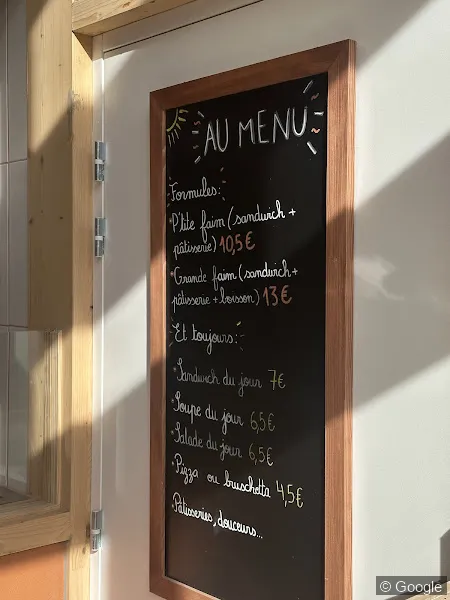 AU MENU
Formules:
*P'tite faim (sandwich +
pâtisserie) 10,5€
*Grande faim (sandwich +
pâtisserie + boisson) 13€
Et toujours:
*Sandwich du jour 7€
*Soupe du jour 6,5€
*Salade du jour 6,5€
*Pizza ou bruschetta 4,5€
*Pâtisseries, douceurs...
© Google